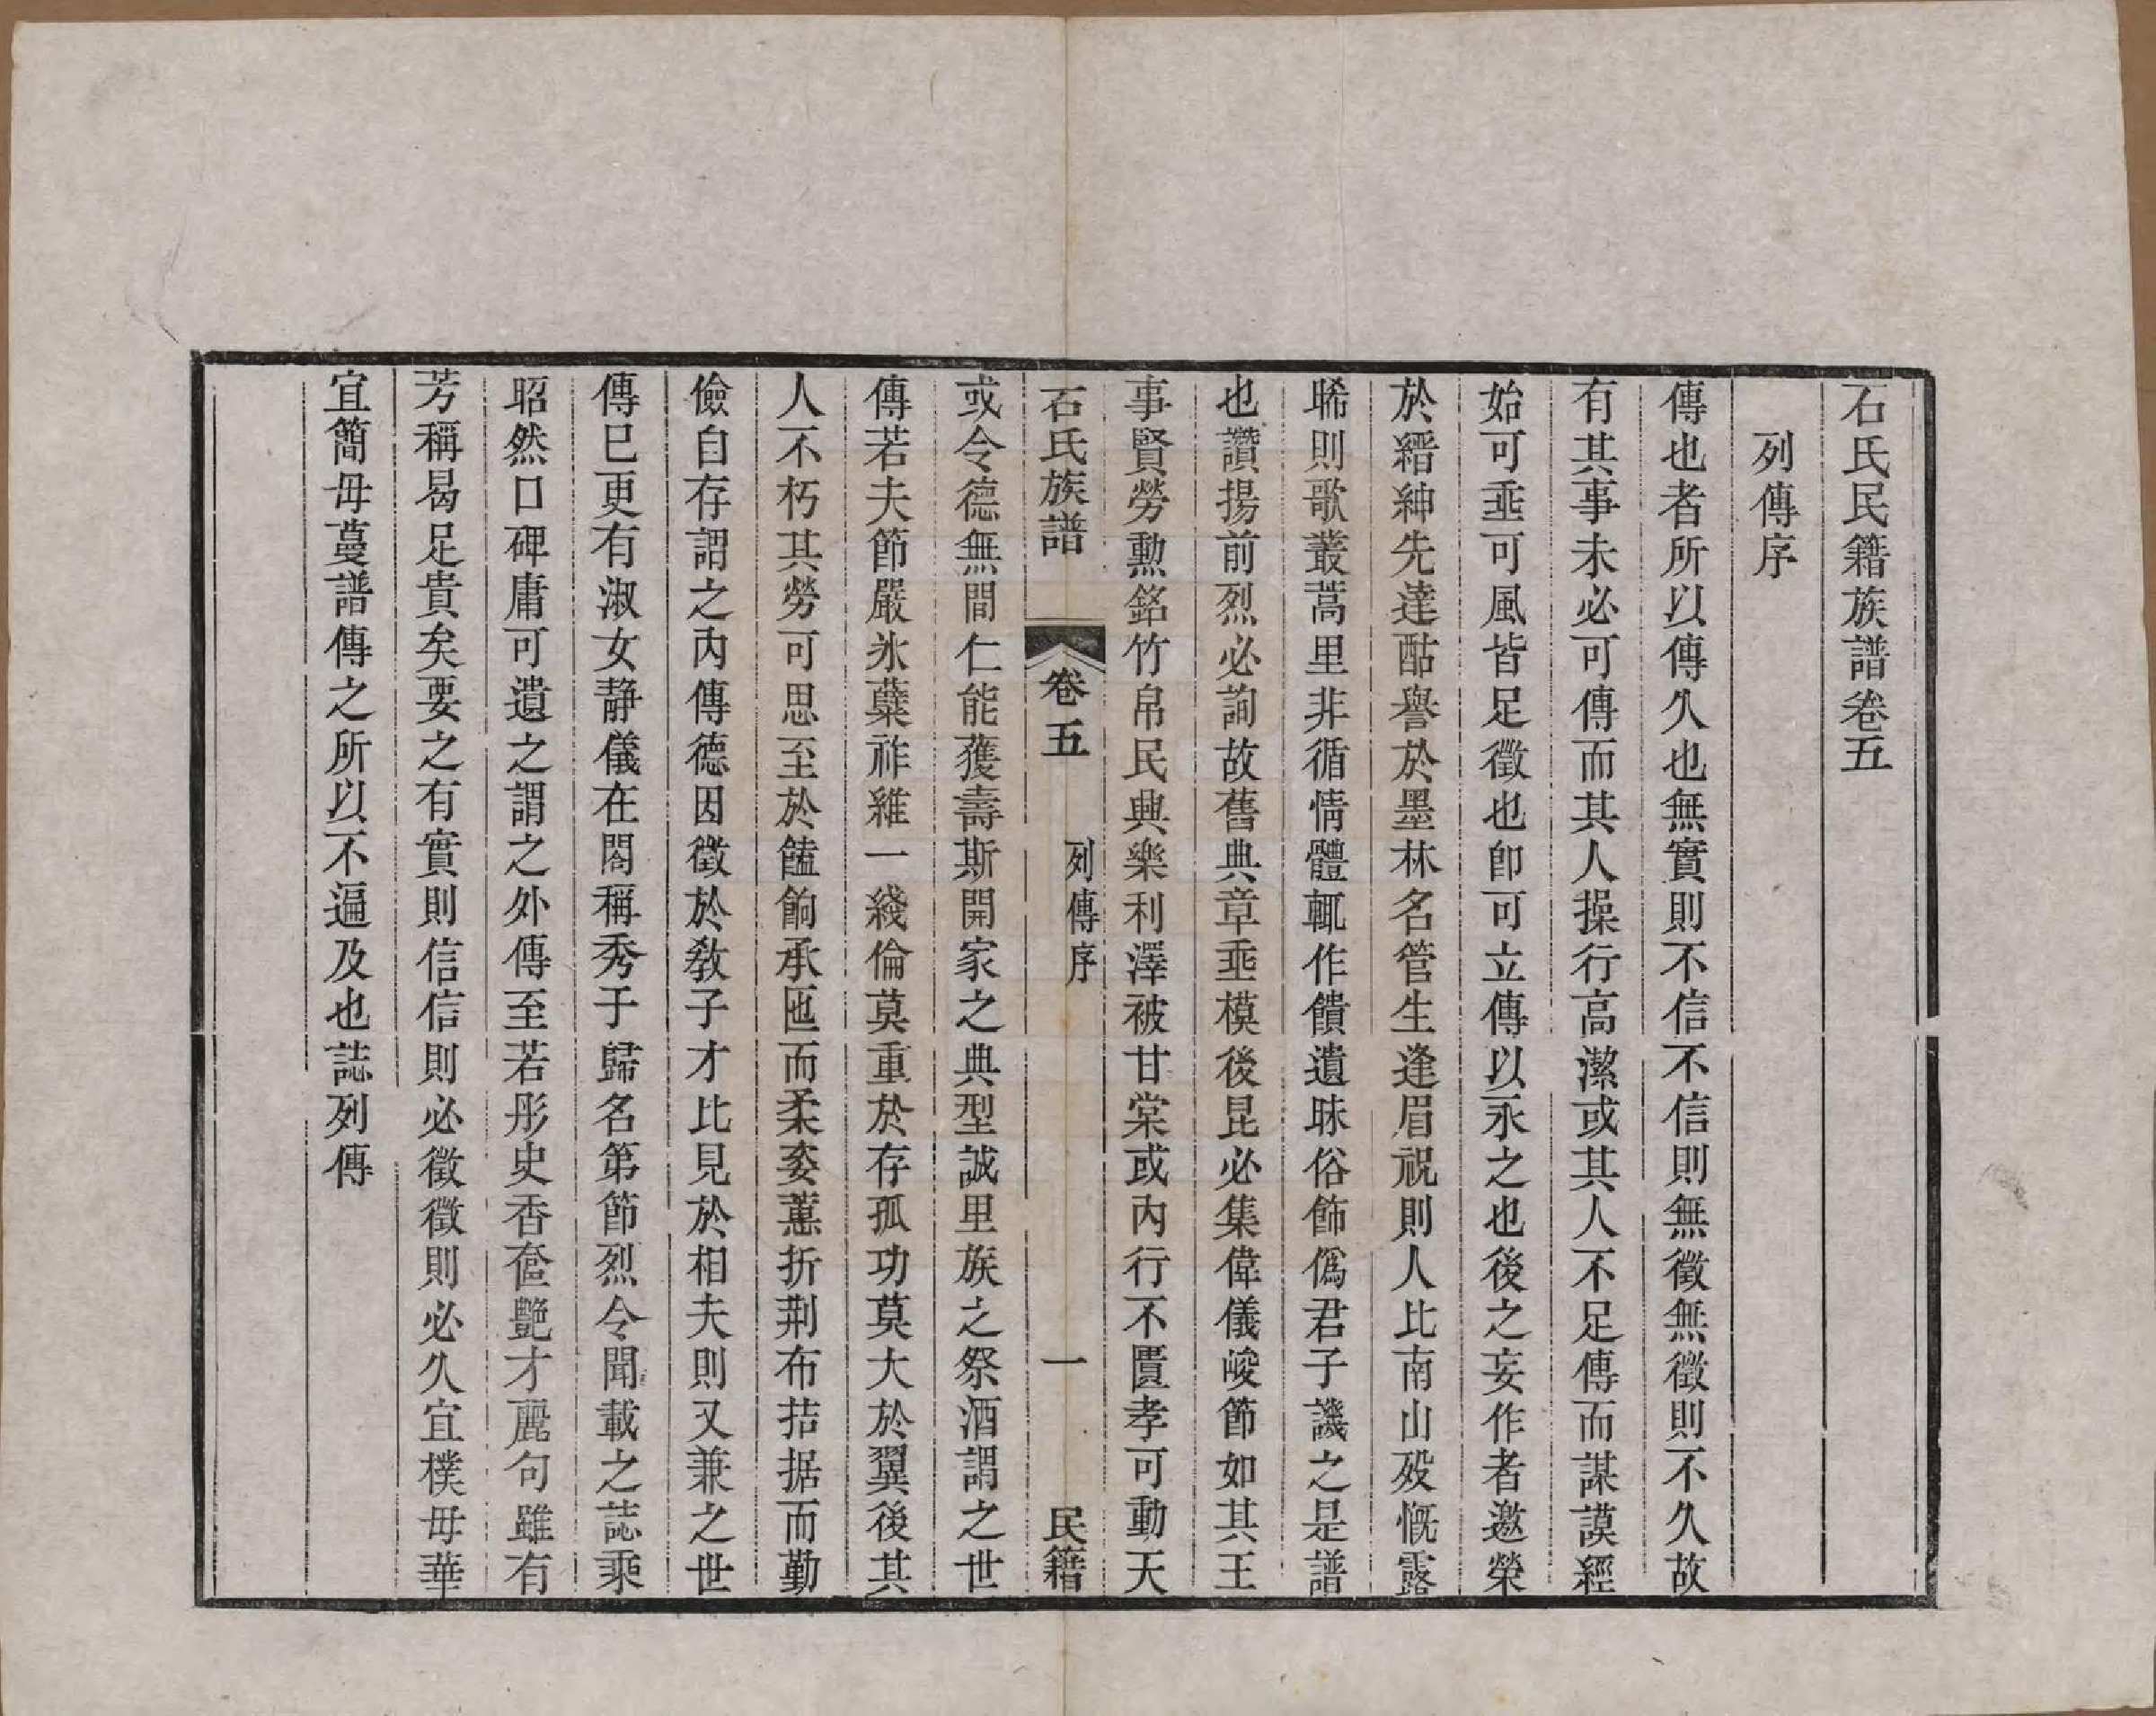 石氏民籍族譜卷五
列傳序
傳也者所以傳久也無實則不信不信則無徵無徵則不久故
有其事未必可傳而其人操行高潔或其人不足傳而謀謨經
始可垂可風皆足徵也卽可立傳以永之也後之妄作者邀榮
於縉紳先達酤譽於墨林名管生逢眉祝則人比南山歿慨露
晞則歌叢蒿里非循情體輒作饋遺昧俗飾僞君子譏之是譜
也讚揚前烈必詢故舊典章垂模後昆必集偉儀峻節如其王
事賢勞勲銘竹帛民興樂利澤被甘棠或內行不匱孝可動天
石氏族譜 卷五 列傳序 一 民籍
或令德無間仁能獲壽斯開家之典型誠里族之祭酒謂之世
傳若夫節嚴氷蘗祚維一綫倫莫重於存孤功莫大於翼後其
人不朽其勞可思至於饁餉承匜而柔姿蕙折荆布拮据而勤
儉自存謂之內傳德因徵於敎子才比見於相夫則又兼之世
傳巳更有淑女靜儀在閤稱秀于歸名第節烈令聞載之誌乘
昭然口碑庸可遺之謂之外傳至若彤史香奩艷才麗句雖有
芳稱曷足貴矣要之有實則信信則必徵徵則必久宜樸毋華
宜簡毋蔓譜傳之所以不逼及也誌列傳